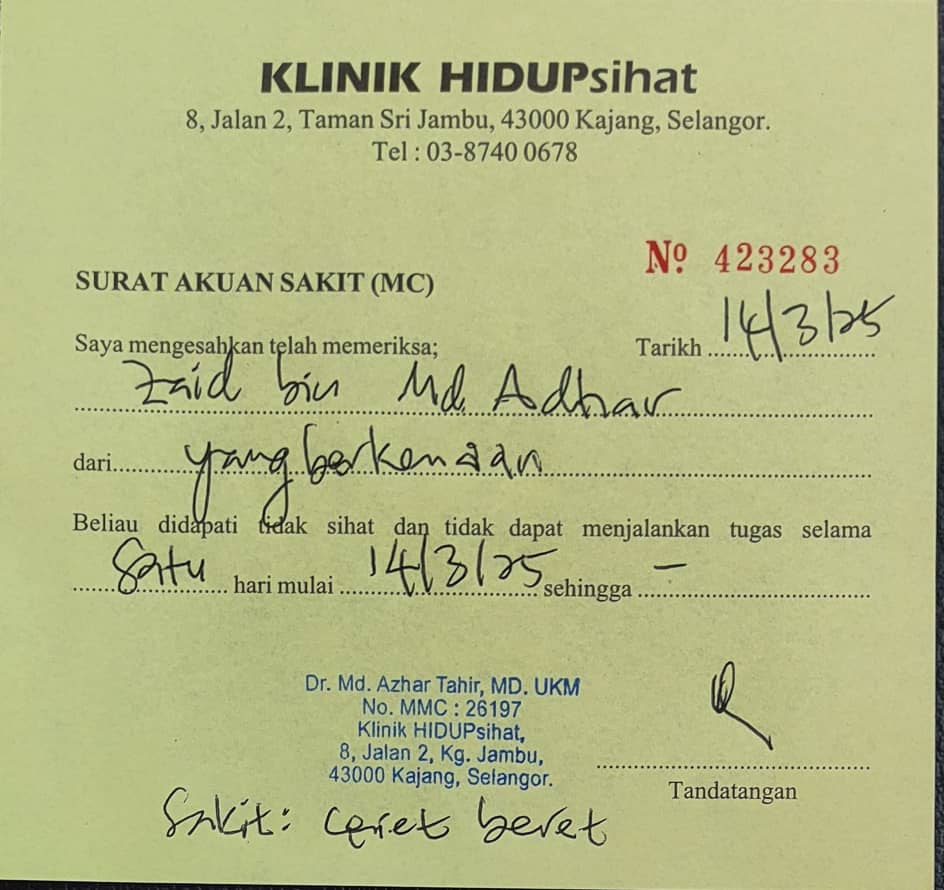 KLINIK HIDUPsihat
8, Jalan 2, Taman Sri Jambu, 43000 Kajang, Selangor.
Tel : 03-8740 0678
Nº 423283
SURAT AKUAN SAKIT (MC)
Saya mengesahkan telah memeriksa; Tarikh 14/3/25
Zaid bin Md. Adhar
dari yang berkenaan
Beliau didapati tidak sihat dan tidak dapat menjalankan tugas selama
Satu hari mulai 14/3/25 sehingga –
Dr. Md. Azhar Tahir, MD. UKM
No. MMC : 26197
Klinik HIDUPsihat,
8, Jalan 2, Kg. Jambu,
43000 Kajang, Selangor.
Tandatangan
Sakit: ceret beret